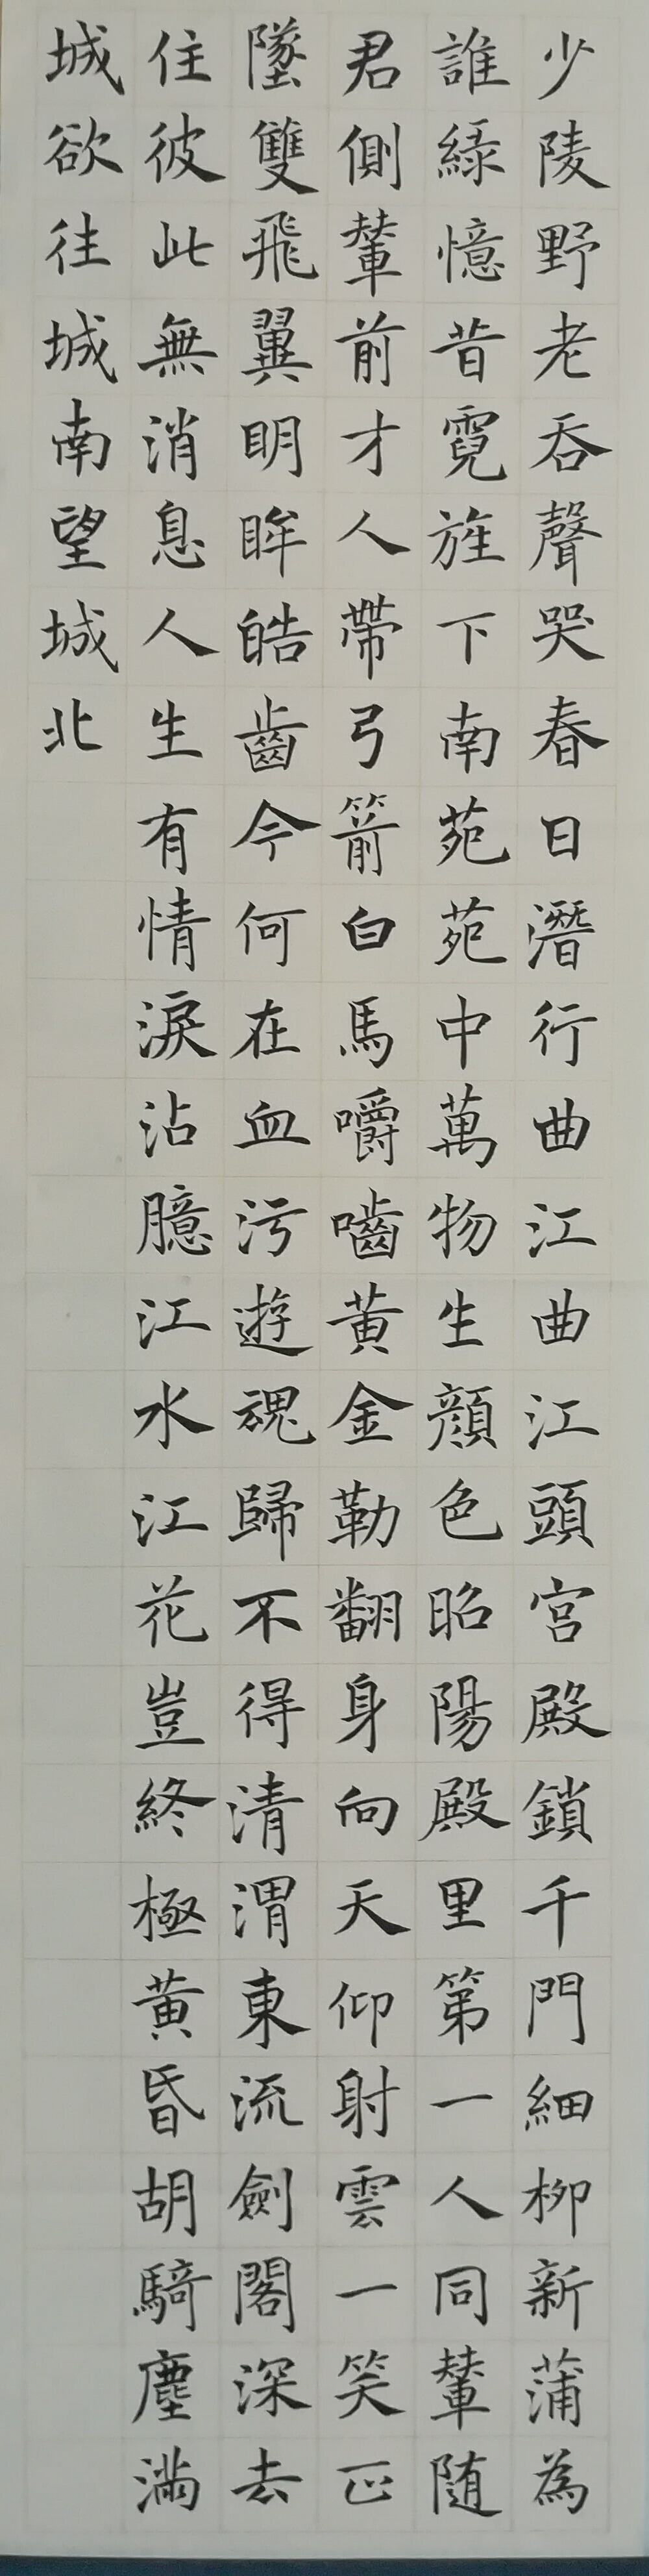 少陵野老吞聲哭春日潛行曲江曲江頭宮殿鎖千門細柳新蒲為
誰綠憶昔霓旌下南苑苑中萬物生顏色昭陽殿里第一人同輦随
君側輦前才人帶弓箭白馬嚼嚙黃金勒翻身向天仰射雲一笑正
墜雙飛翼明眸皓齒今何在血污遊魂歸不得清渭東流劍閣深去
住彼此無消息人生有情淚沾臆江水江花豈終極黃昏胡騎塵滿
城欲往城南望城北